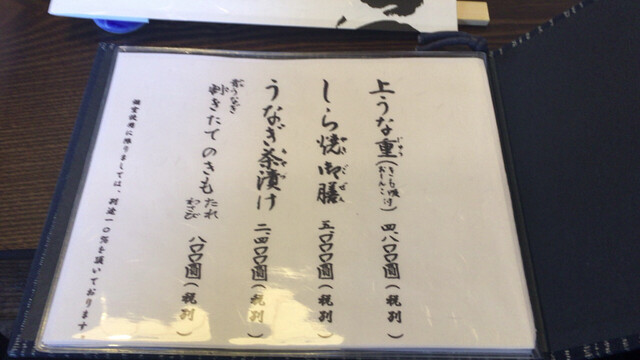 上うな重(きも吸付 おしんこ付) 四、八〇〇圓(税別)
しら焼御膳 五、〇〇〇圓(税別)
うなぎ茶漬け 二、四〇〇圓(税別)
剥きたてのきも たれ わさび 八〇〇圓(税別)
個室使用に限りましては、別途一〇%を頂いております。